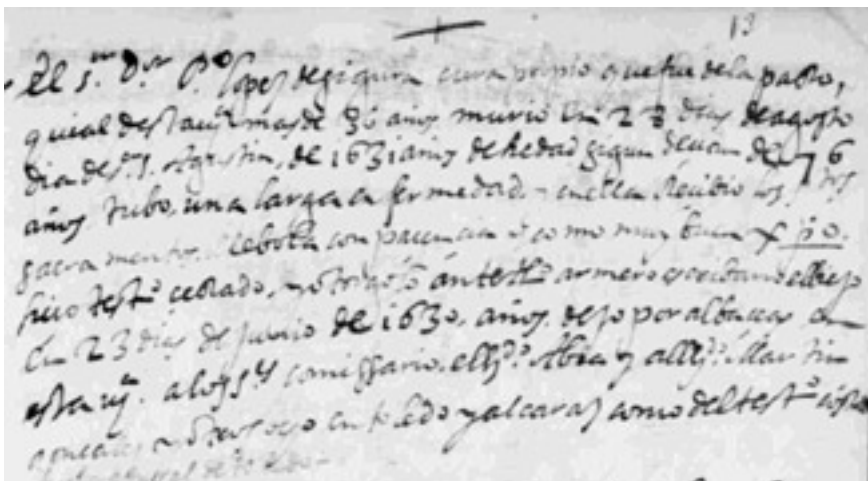 13
El s.r D.or P.o Lopez de Segura cura propio que fue de la parro,
quial desta uj.a mas de 36 años. murio En 28 dias de agosto
dia de s. Agustin, de 1631 años de hedad sigun decian de 76
años. tubo. una larga enfermedad. en ella Recibio los s.tos
sacramentos. con paciencia como muy buen X po.
hico test.o cerrado, y otorgolo ante armero escribano el biejo
En 23 dias de junio de 1630. años. dejo por albaceas en
esta uj.a a los s.es comissario. el lj.do Abia y al lj.do Martin
gonçales y otros en toledo y alcaraz como del test.o